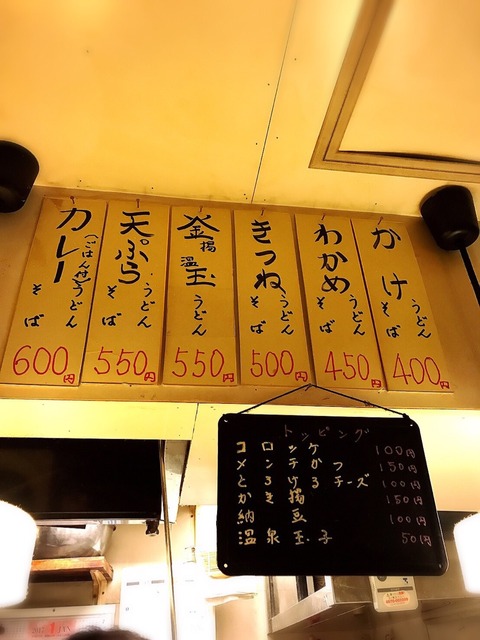 かけ うどん そば 400円
わかめ うどん そば 450円
きつね うどん そば 500円
釜揚 温玉 うどん 550円
天ぷら うどん そば 550円
カレー (ごはん付) うどん そば 600円
トッピング
コロッケ 100円
メンチかつ 150円
とろけるチーズ 100円
かき揚 150円
納豆 100円
温泉玉子 50円